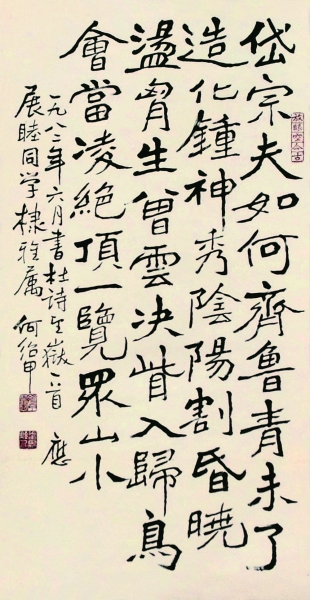 岱宗夫如何齊魯青未了
造化鍾神秀陰陽割昏曉
盪胷生曾雲決眥入歸鳥
會當凌絕頂一覽眾山小
一九八三年六月書杜詩望嶽一首 應
展睦同学棣雅屬 何紹甲